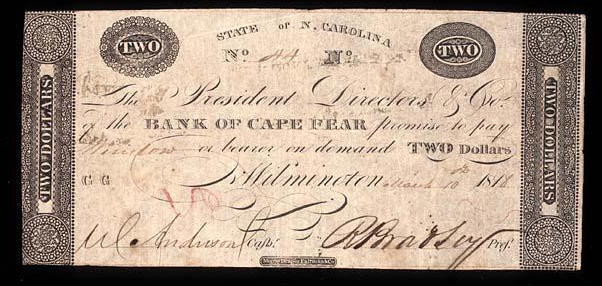 STATE of N. CAROLINA
TWO
TWO
No. 44 No.
The President Directors & Co.
of the BANK OF CAPE FEAR promise to pay
or bearer on demand TWO Dollars
G G Wilmington March 10th 1818
Cashr. Prest.
TWO DOLLARS
TWO DOLLARS
Murray Draper Fairman & Co